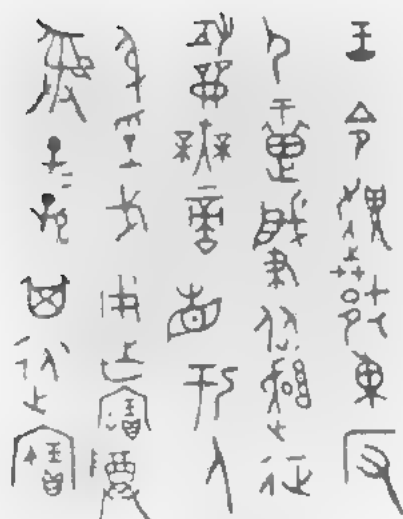 王令趞捷東反
尸疐肇從趞征
攻龠無啻省于人
身孚戈用乍寶尊
彝子=孫=其永寶